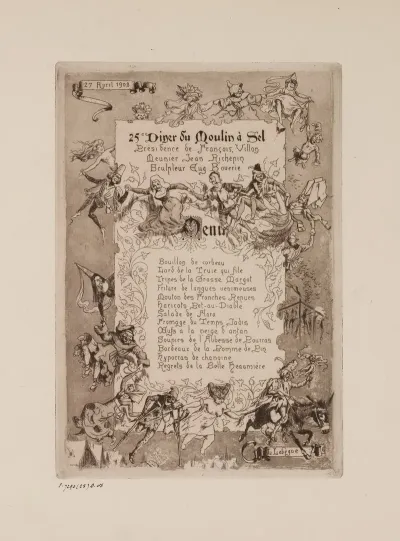 27 April 1903
25me Diner du Moulin à Sel
Présidence de François Villon
Meunier Jean Richepin
Sculpteur Eug. Boverie
Menu
Bouillon de corbeau
Lard de la Truie qui file
Tripes de la Grosse Margot
Friture de langues venimeuses
Mouton des Franches Repues
Haricots Pet-au-Diable
Salade de Flora
Fromage du Temps Jadis
Œufs à la neige d'antan
Soupirs de l'Abbesse de Pourras
Bordeaux de la Pomme de Pin
Hypocras de chanoine
Regrets de la Belle Heaumière